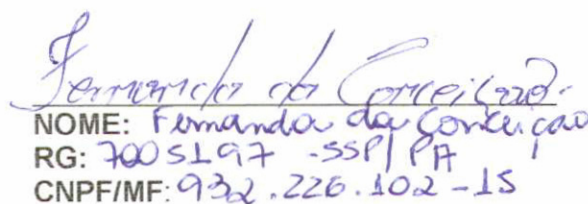 Fernanda da Conceição.
NOME: Fernanda da Conceição
RG: 7005197 -SSP/PA
CNPF/MF: 932.226.102-15